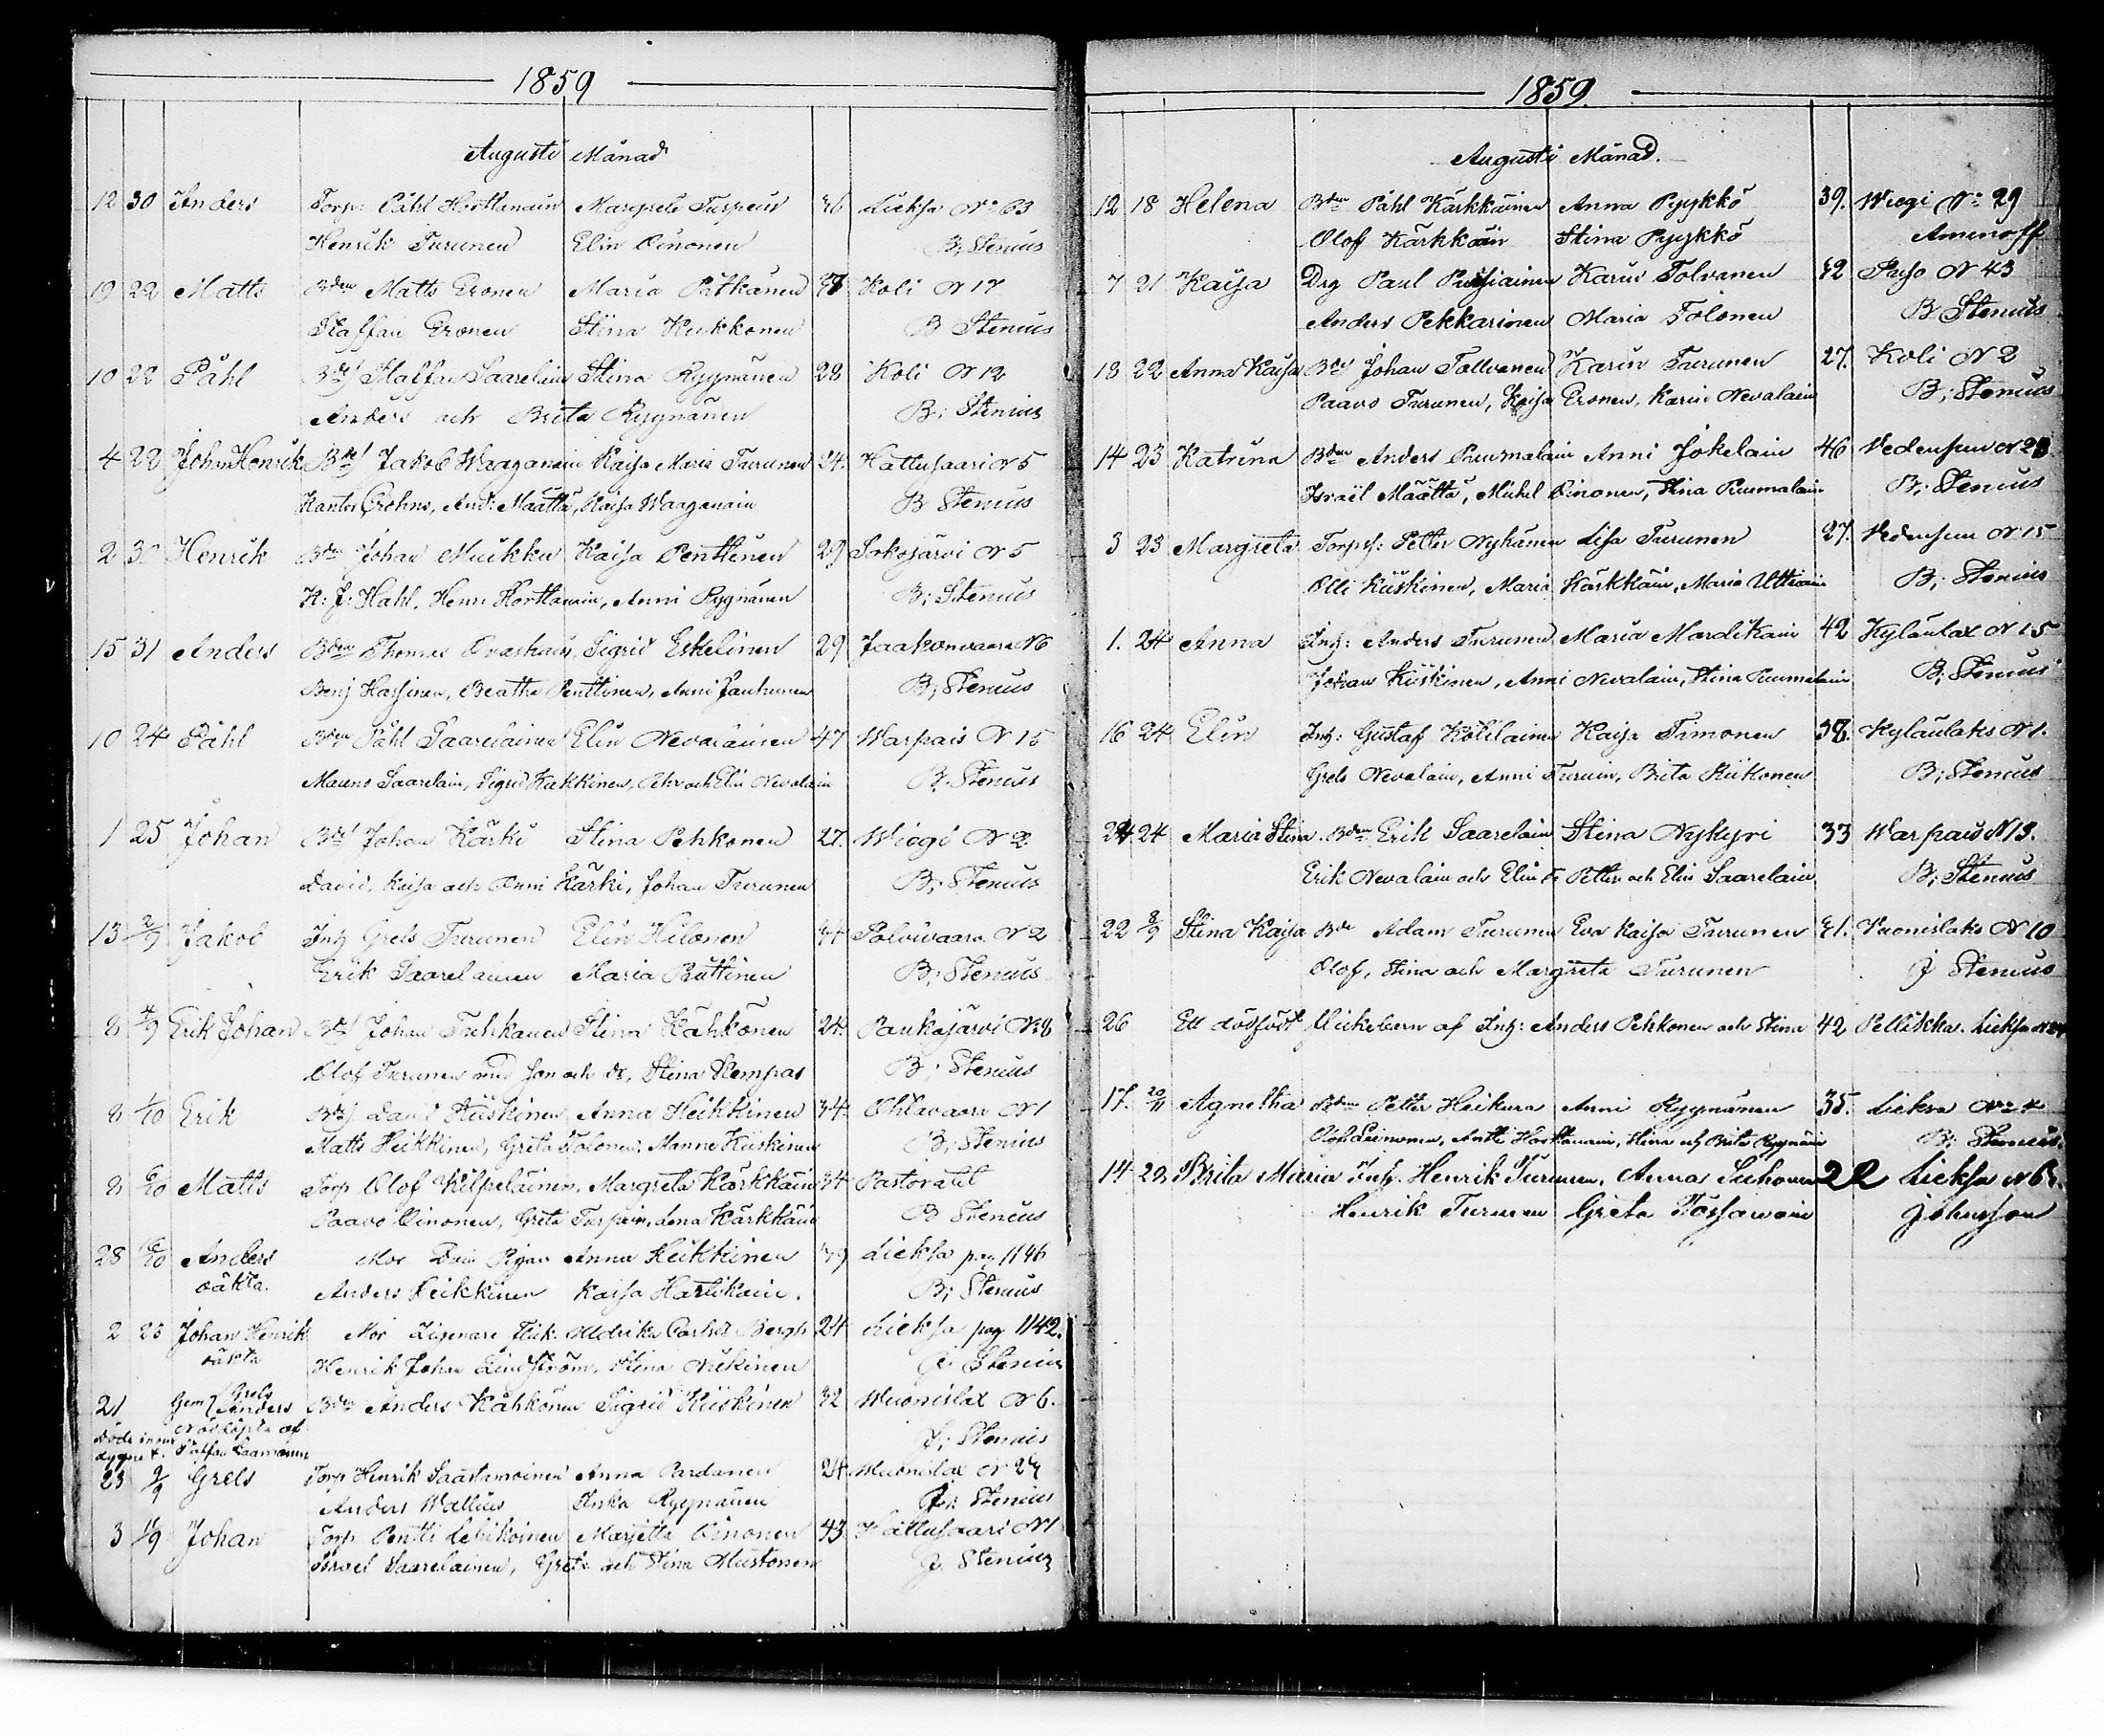 1859
Augusti Månad
12 30 Anders Torp: Påhl Horttanain Margreta Turpein 36 Lieksa No 63
Henrik Turunen Elin Oinonen B; Stenius
19 22 Matts Bden Matts Eronen Maria Pätkänen 38 Koli N 17
Staffan Eronen Stina Kukkonen B Stenius
10 22 Påhl Staffan Saarelain Stina Ryynänen 28 Koli N 12
Anders och Brita Ryynänen B; Stenius
4 22 Johan Henrik Jakob Waaganain Kaisa Maria Turunen 24. Hattusaari N 5
Kantor Crohns, And: Määttä, Kaisa Waaganain B Stenius
2 30 Henrik Bden Johan Muikku Kaisa Penttinen 29 Sokojärvi N 5
H: J: Hahl, Henr Horttanain, Anni Ryynänen B; Stenius
15 31 Anders Bden Thomas Ovaskain, Sigrid Eskelinen 29 Jaakonvaara N6
Benj Hassinen, Beatha Penttinen, Anni Jauhiainen B; Stenius
10 24 Påhl Bden Påhl Saarelainen Elin Nevalainen 47 Warpais N 15
Mauns Saarelain, Sigrid Kakkinen, Pehr och Elin Nevalain B. Stenius
1 25 Johan Johan Kärki Stina Pehkonen 27. Wiegi N 2
David, Kaisa och Anni Kärki, Johan Turunen B; Stenius
13 2/9 Jakob Inh Grels Turunen Elin Hilonen 44 Polvivaara N 2
Erik Saarelainen Maria Ruttinen B; Stenius
8 4/9 Erik Johan Johan Tuhkanen Stina Kähkönen 24. Pankajärvi N 8
Olof Turunen med son och dr, Stina Kempas B; Stenius
8 1/10 Erik David Kiiskinen Anna Heikkinen 34. Ohtavaara N 1
Matts Heikkinen, Greta Tolonen, Manne Kiiskinen B; Stenius
8 6/10 Matts Torp Olof Kilpeläinen, Margreta Kärkkäin 34 Pastoratet
Paavo Oinonen, Greta Turpein, Lena Kärkkäin B Stenius
28 6/10 Anders Mor Anna Heikkinen 39 Lieksa pag 1146
oäkta. Anders Heikkinen Kaisa Hartikain. B; Stenius
2 25 Johan Henrik Mor Uldrika Bergh 24 Lieksa pag 1142.
oäkta Henrik Johan Lindström, Stina Nikinen J. Stenius
21 Gem Grels Anders Bden Anders Kähkönen Sigrid Kiiskinen 32 Wuonislax N 6.
döde inom nödlöpta af J; Stenius
dygnet. Staffan
23 9/9 Grels Torp Henrik Saastamoinen Anna Pardanen 24 Wuonislax N 24
Anders Wallius Inka Ryynänen J; Stenius
3 Johan Torp Pentti Lehikoinen Marjetta Oinonen 43. Hattusaari N 1
Israel Saarelainen, Greta och Stina Mustonen J. Stenius
1859.
Augusti Månad.
12 18 Helena Bden Påhl Kärkkäinen Anna Pyykkö 39. Wiegi No 29
Olof Kärkkäin Stina Pyykkö Aminoff
7 21 Kaisa Drg Paul Karin Tolvanen 42 N 43
Anders Pekkarinen Maria Tolonen B Stenius
18 22 Anna Kaisa Johan Tollvanen Karin Turunen 27. Koli N 2
Paavo Turunen, Kaisa Eronen, Karin Nevalain B; Stenius
14 23 Katrina Bden Anders Ruumalain Anni Jokelain 46 Vedensuu N 23
Israël Määttä, Mickel Oinonen, Stina Ruumalain B; Stenius
3 23 Margreta Torps: Petter Nykänen Lisa Turunen 27. Vedensuu N 15
Olli Kiiskinen, Maria Kärkkäin, Maria Uttriain B; Stenius
1. 24 Anna Inh: Anders Turunen Maria Mardikain 42 Kylänlax N 15
Johan Kiiskinen, Anni Nevalain, Stina Ruumalain B; Stenius
16 24 Elin Inh: Gustaf Kölläinen Kaisa Timonen 38. Kylänlaks N 1.
Grels Nevalain, Anni Turuin, Brita Kiikonen B; Stenius
24 24 Maria Stina Bden Erik Saarelain Stina Nykyri 33 Warpais N 13.
Erik Nevalain och Elin Petter och Elin Saarelain B; Stenius
22 8/9 Stina Kaisa Bde Adam Turunen Eva Kaisa Turunen 41. Vuonislaks N 10
Olof, Stina och Margreta Turunen J Stenius
26 Ett dödfödt flickebarn af Inh: Anders Pehkonen och Stina 42 Pellikka. Lieksa
17. 20/11 Agnetha Bden Petter Heikura Anni Ryynänen 35. Lieksa No 4
Olof Leinonen, Antti Horttanain, Stina och Brita Ryynäin B; Stenius.
14 28 Brita Maria Inh. Henrik Turunen, Anna Suhonen 22 Lieksa N 6
Henrik Turunen Greta Tossavain Johnsson